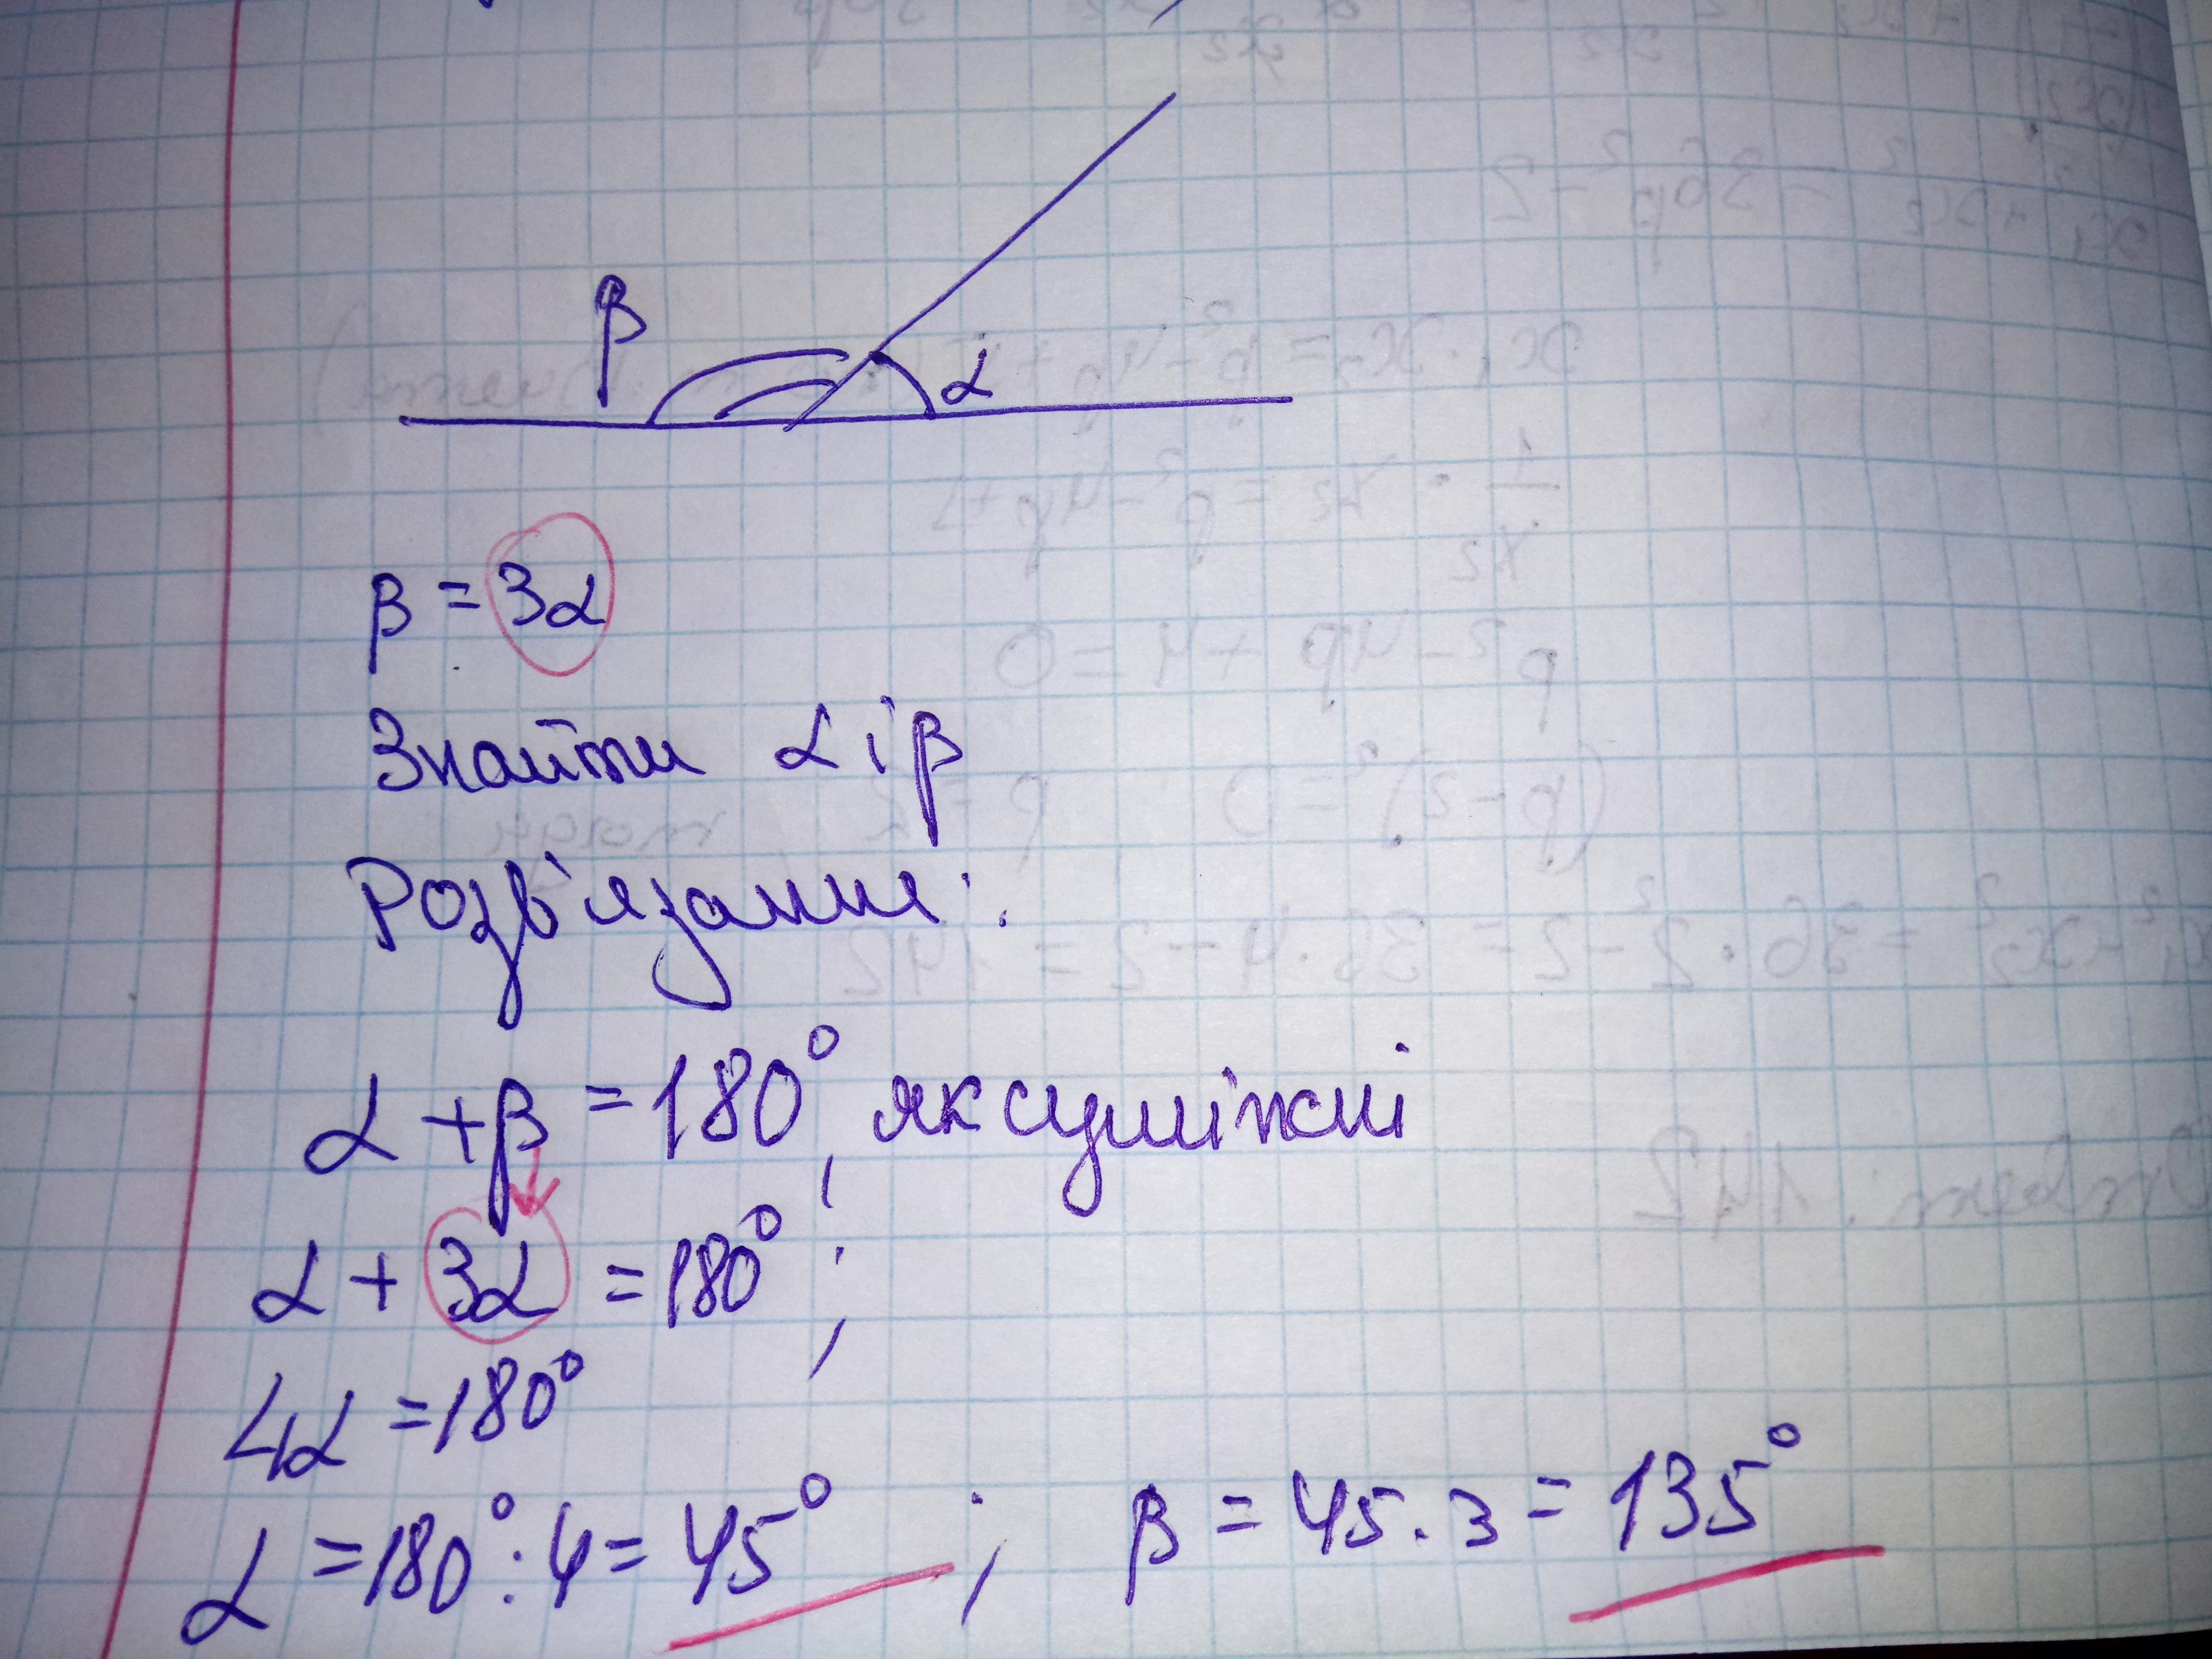 β
α
β = 3α
Знайти α і β
Розв'язання:
α + β = 180°, як суміжні
α + 3α = 180°;
4α = 180°
α = 180° : 4 = 45° ; β = 45 · 3 = 135°